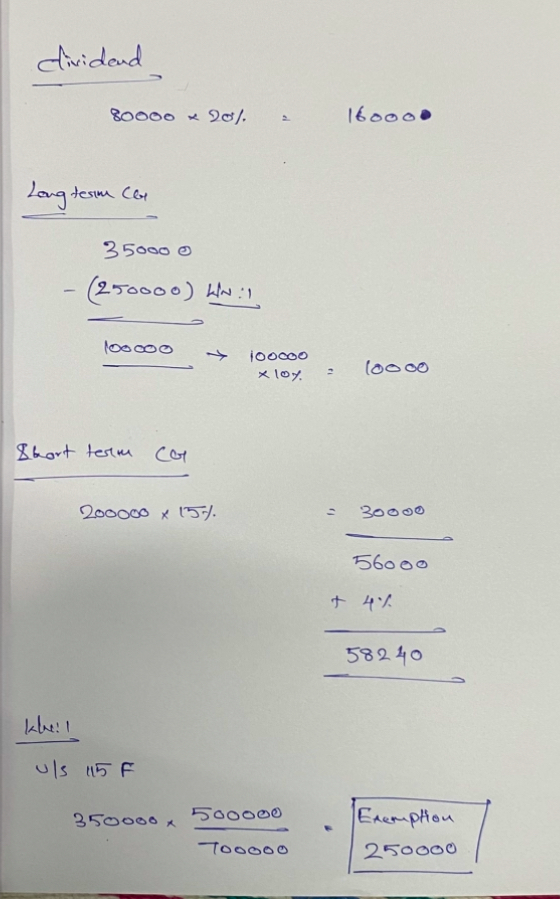 dividend
80000 × 20% = 16000
Long term CG
350000
- (250000) WN:1
100000 → 100000
×10% = 10000
Short term CG
200000 × 15% = 30000
56000
+ 4%
58240
WN:1
U/s 115 F
350000 × 500000
700000
= Exemption
250000